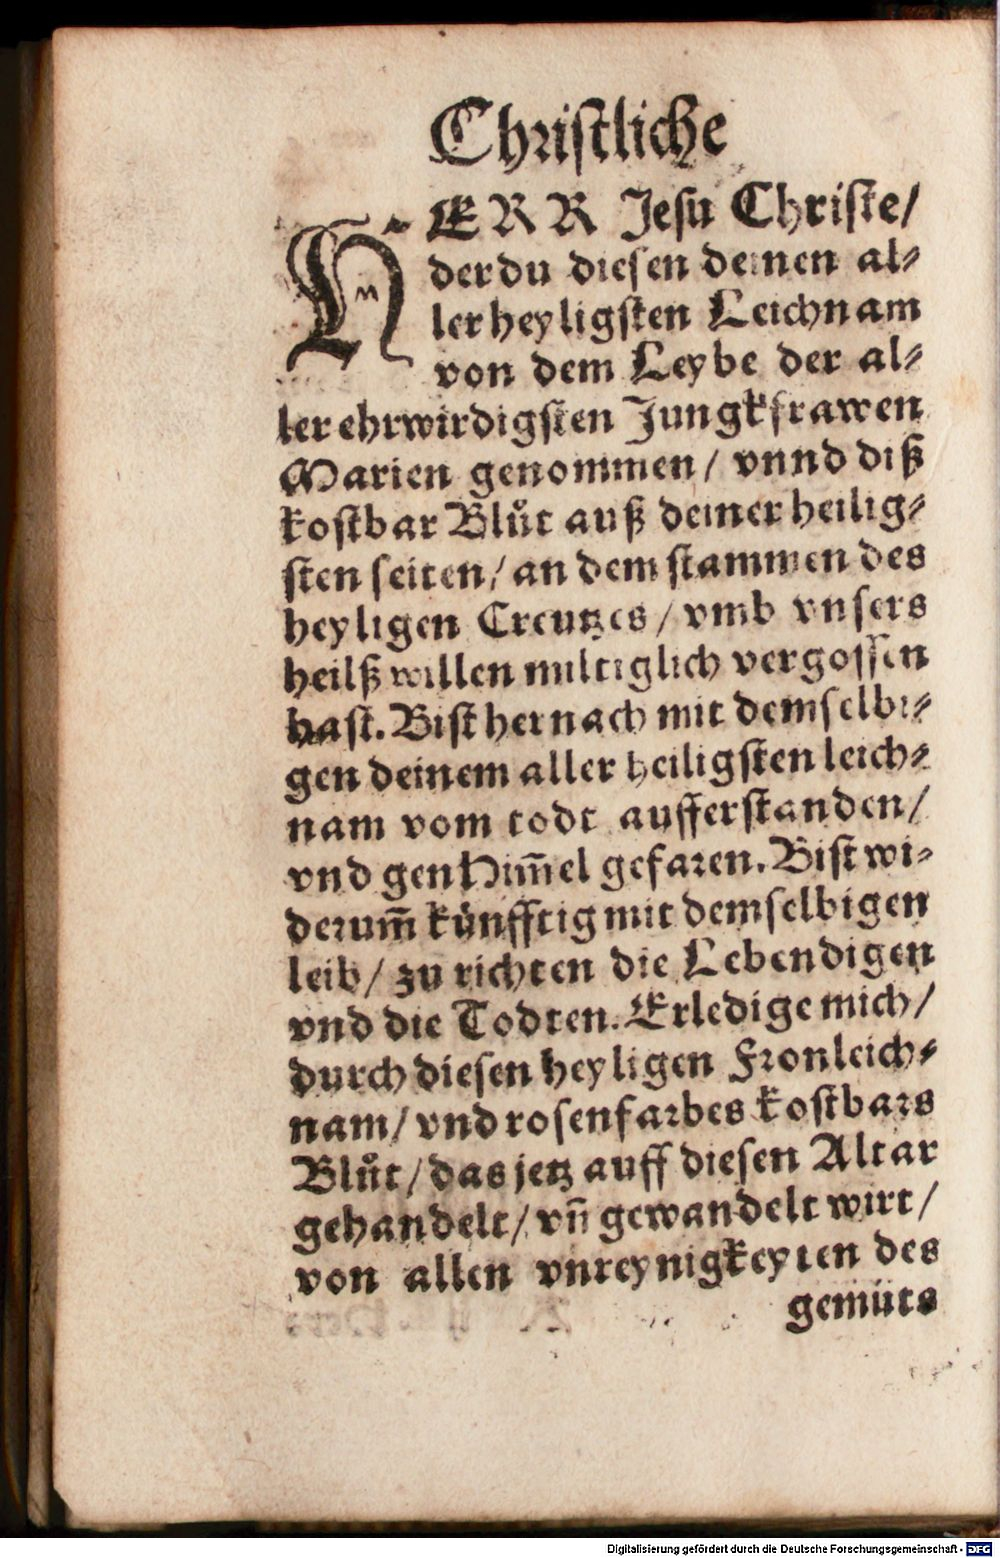 Christliche
HERR Jesu Christe/
der du diesen deinen al⸗
ler heyligsten Leichnam
von dem Leybe der al⸗
ler ehrwirdigsten Jungkfrawen
Marien genommen/ vnnd diß
kostbar Blůt auß deiner heilig⸗
sten seiten/ an dem stammen des
heyligen Creutzes/ vmb vnsers
heilß willen miltiglich vergossen
hast. Bist hernach mit demselbi⸗
gen deinem aller heiligsten leich⸗
nam vom todt aufferstanden/
vnd gen Him̃el gefaren. Bist wi⸗
derum̃ künfftig mit demselbigen
leib/ zu richten die Lebendigen
vnd die Todten. Erledige mich/
durch diesen heyligen Fronleich⸗
nam/ vnd rosenfarbes kostbars
Blůt/ das jetz auff diesen Altar
gehandelt/ vñ gewandelt wirt/
von allen vnreynigkeyten des
gemüts
Digitalisierung gefördert durch die Deutsche Forschungsgemeinschaft - DFG